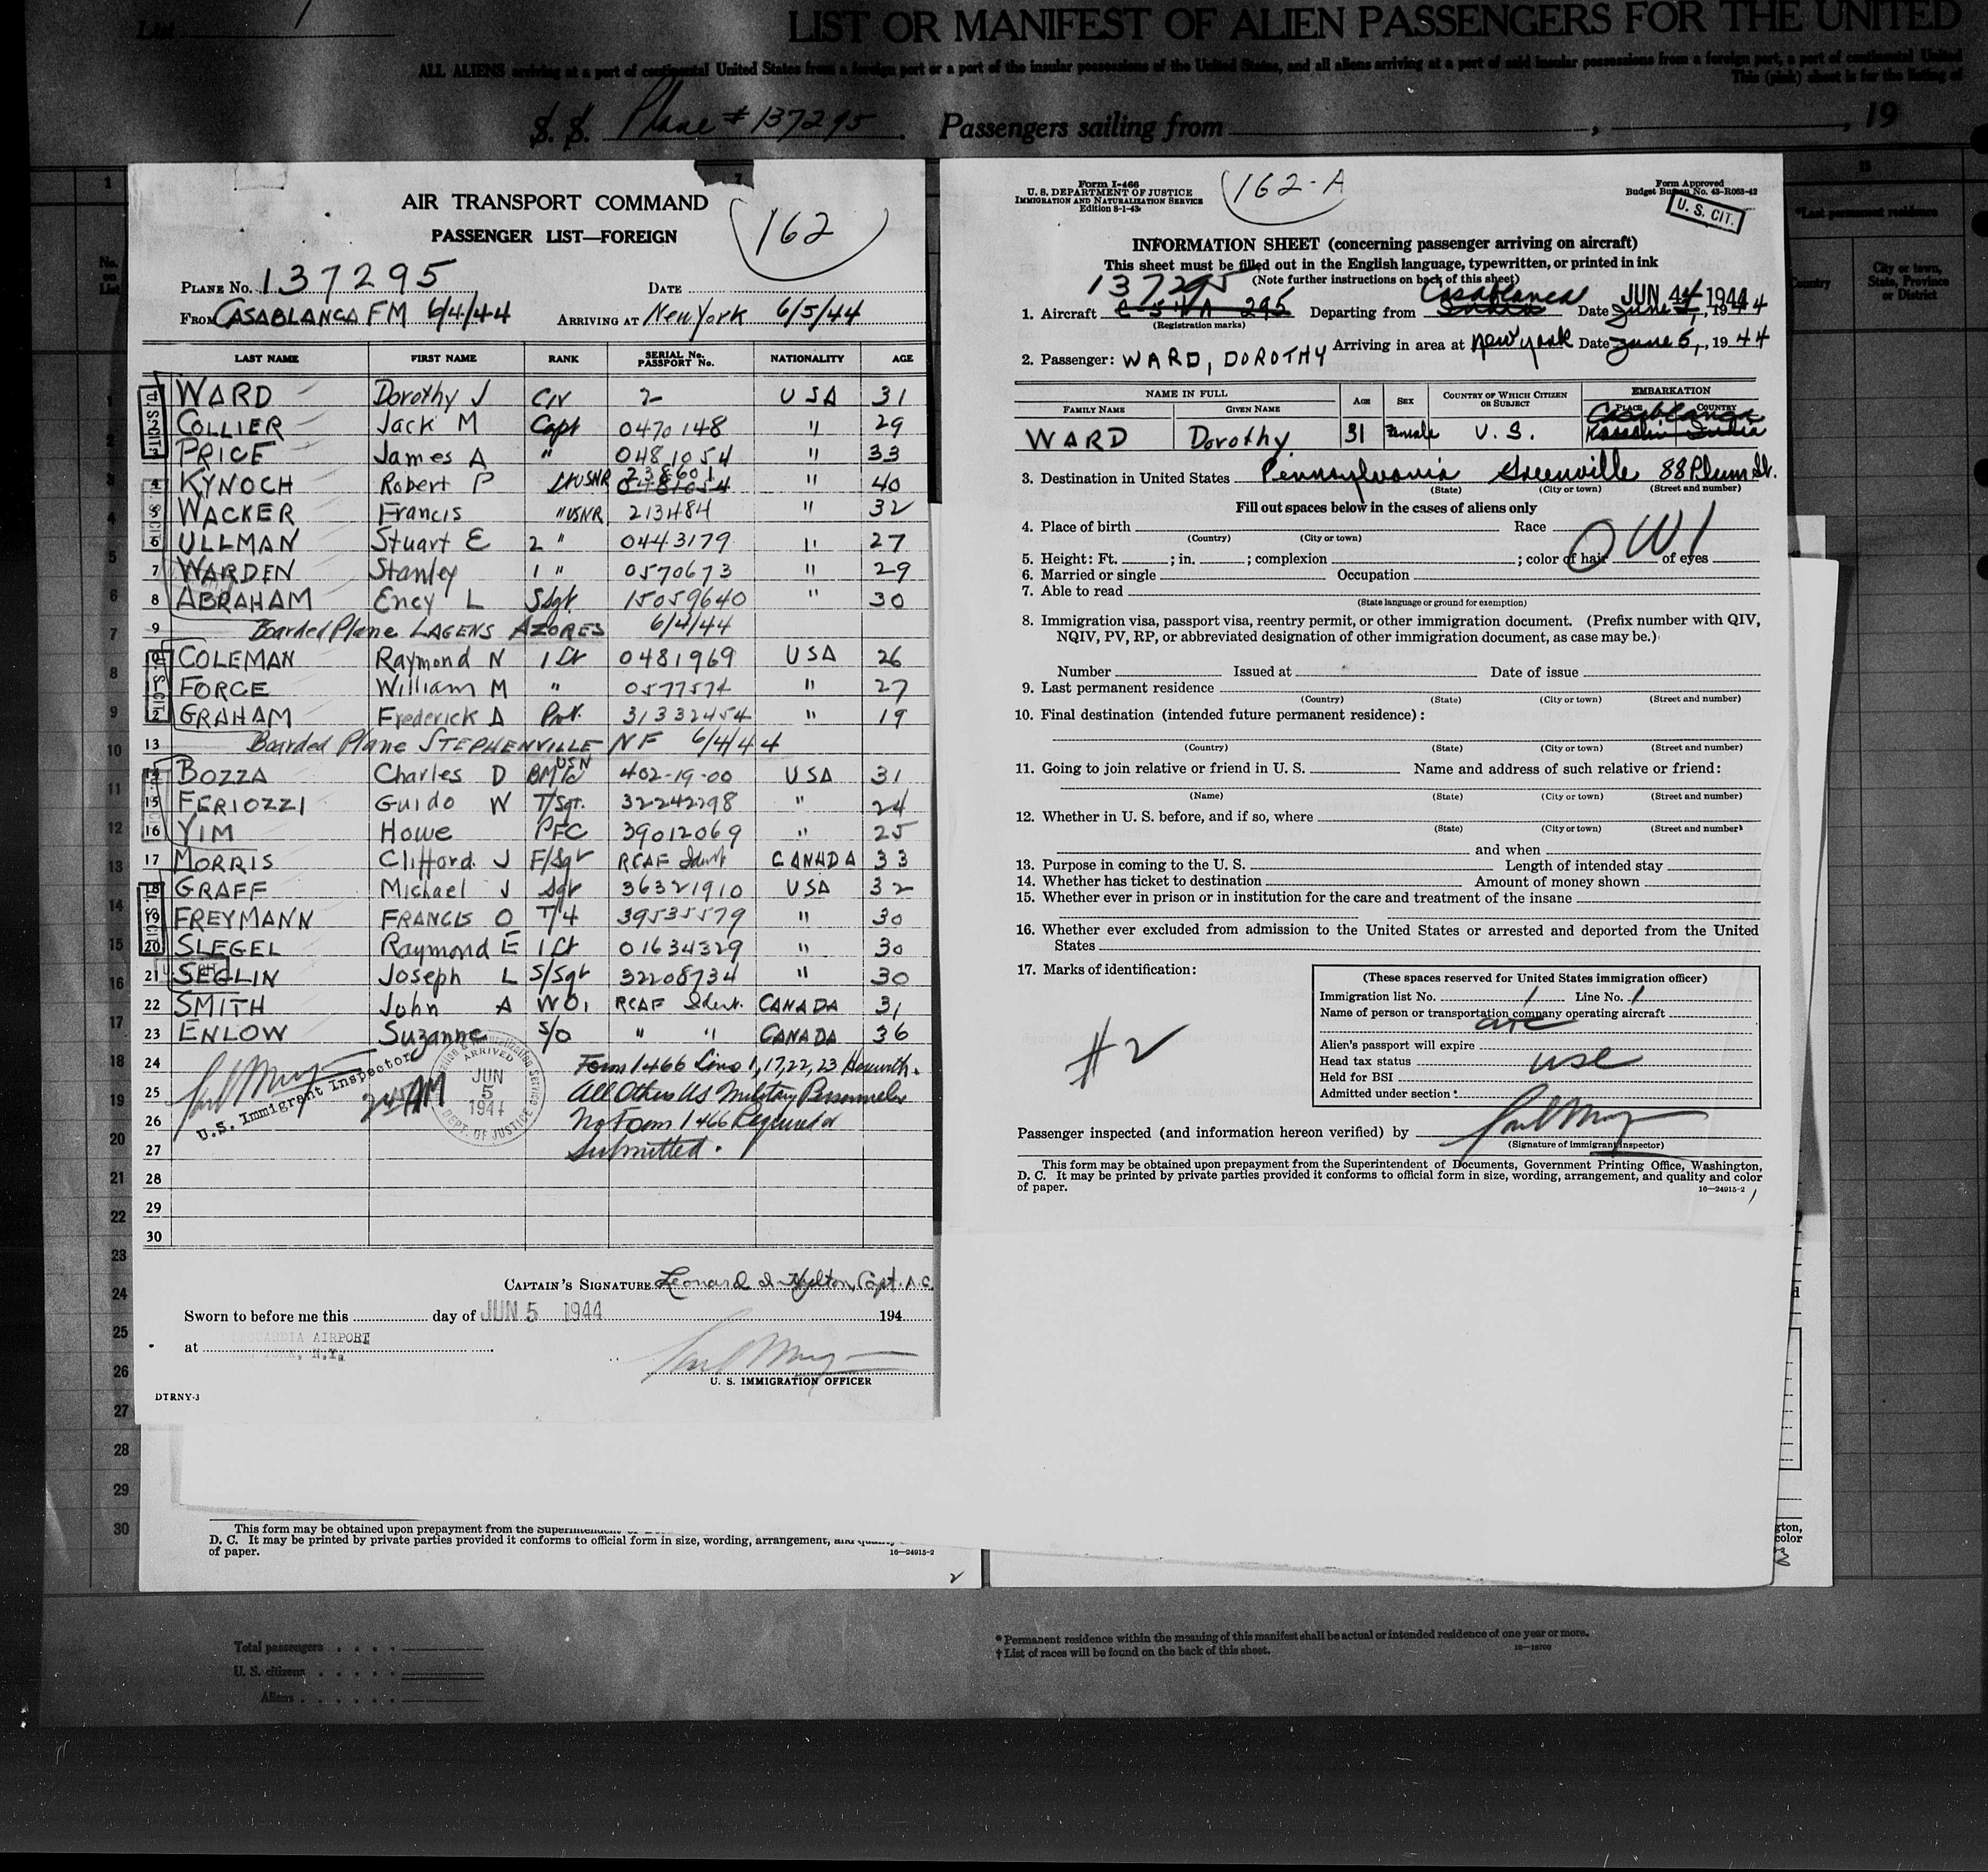 List 1
LIST OR MANIFEST OF ALIEN PASSENGERS FOR THE UNITED
ALL ALIENS arriving at a port of continental United States from a foreign port or a port of the insular possessions of the United States, and all aliens arriving at a port of said insular possessions from a foreign port, a port of continental United
This (pink) sheet is for the listing of
S. S. Plane # 137295. Passengers sailing from , , 19
AIR TRANSPORT COMMAND
PASSENGER LIST—FOREIGN
162
PLANE NO. 137295 DATE
FROM CASABLANCA FM 6/4/44 ARRIVING AT New York 6/5/44
LAST NAME FIRST NAME RANK SERIAL No. PASSPORT No. NATIONALITY AGE
WARD Dorothy J Civ 2- USA 31
COLLIER Jack M Capt 0470148 " 29
3 PRICE James A " 0481054 " 33
4 KYNOCH Robert P Lt USNR 238601 0481054 " 40
5 WACKER Francis " USNR 213484 " 32
6 ULLMAN Stuart E 2 " 0443179 " 27
7 WARDEN Stanley 1 " 0570673 " 29
8 ABRAHAM Ency L SSgt 15059640 " 30
9 Boarded Plane LAGENS AZORES 6/4/44
COLEMAN Raymond N 1 Lt 0481969 USA 26
FORCE William M " 0577574 " 27
GRAHAM Frederick A Pvt. 31332454 " 19
13 Boarded Plane STEPHENVILLE NF 6/4/44
14 BOZZA Charles D USN 402-19-00 USA 31
15 FERIOZZI Guido W T/Sgt. 32242298 " 24
16 YIM Howe PFC 39012069 " 25
17 MORRIS Clifford J F/Sgt RCAF Ident CANADA 33
18 GRAFF Michael J Sgt 36321910 USA 32
19 FREYMANN FRANCIS O T/4 39535579 " 30
20 SLEGEL Raymond E 1 Lt 01634329 " 30
21 SEGLIN Joseph L S/Sgt 32208734 " 30
22 SMITH John A WO1 RCAF Ident. CANADA 31
23 ENLOW Suzanne S/O " " CANADA 36
24 Form 1466 Lines 1, 17, 22, 23 Herewith.
25 All Others US Military Personnel
26 No Form 1466 Required or
27 Submitted.
28
29
30
U.S. Immigrant Inspector
ARRIVED
JUN
5
1944
DEPT. OF JUSTICE
CAPTAIN'S SIGNATURE Leonard Hylton, Capt. A.C.
Sworn to before me this day of JUN 5 1944 194
at LAGUARDIA AIRPORT
NEW YORK, N.Y.
U. S. IMMIGRATION OFFICER
DTRNY-3
Form I-466
U. S. DEPARTMENT OF JUSTICE
IMMIGRATION AND NATURALIZATION SERVICE
Edition 8-1-43
162-A
Form Approved
Budget Bureau No. 43-R063-42
U. S. CIT.
INFORMATION SHEET (concerning passenger arriving on aircraft)
This sheet must be filled out in the English language, typewritten, or printed in ink
(Note further instructions on back of this sheet)
137295 Casablanca JUN 4 1944
1. Aircraft C-54A 295 Departing from India Date June , 1944
(Registration marks)
Arriving in area at New York Date June 5, 1944
2. Passenger: WARD, DOROTHY
NAME IN FULL AGE SEX COUNTRY OF WHICH CITIZEN OR SUBJECT EMBARKATION
FAMILY NAME GIVEN NAME PLACE COUNTRY
Casablanca
WARD Dorothy 31 Female U. S. Karachi India
3. Destination in United States Pennsylvania Greenville 88 Plum St.
(State) (City or town) (Street and number)
Fill out spaces below in the cases of aliens only
4. Place of birth Race
(Country) (City or town)
OWI
5. Height: Ft. ; in. ; complexion ; color of hair of eyes
6. Married or single Occupation
7. Able to read
(State language or ground for exemption)
8. Immigration visa, passport visa, reentry permit, or other immigration document. (Prefix number with QIV,
NQIV, PV, RP, or abbreviated designation of other immigration document, as case may be.)
Number Issued at Date of issue
9. Last permanent residence
(Country) (State) (City or town) (Street and number)
10. Final destination (intended future permanent residence):
(Country) (State) (City or town) (Street and number)
11. Going to join relative or friend in U. S. Name and address of such relative or friend:
(Name) (State) (City or town) (Street and number)
12. Whether in U. S. before, and if so, where
(State) (City or town) (Street and number)
and when
13. Purpose in coming to the U. S. Length of intended stay
14. Whether has ticket to destination Amount of money shown
15. Whether ever in prison or in institution for the care and treatment of the insane
16. Whether ever excluded from admission to the United States or arrested and deported from the United
States
17. Marks of identification:
#2
(These spaces reserved for United States immigration officer)
Immigration list No. 1 Line No. 1
Name of person or transportation company operating aircraft
atc
Alien's passport will expire
Head tax status USC
Held for BSI
Admitted under section
Passenger inspected (and information hereon verified) by
(Signature of immigrant inspector)
This form may be obtained upon prepayment from the Superintendent of Documents, Government Printing Office, Washington,
D. C. It may be printed by private parties provided it conforms to official form in size, wording, arrangement, and quality and color
of paper.
16—24915-2 1
This form may be obtained upon prepayment from the
D. C. It may be printed by private parties provided it conforms to official form in size, wording, arrangement,
of paper.
16—24915-2
2
Total passengers
U. S. citizens
Aliens
* Permanent residence within the meaning of this manifest shall be actual or intended residence of one year or more.
† List of races will be found on the back of this sheet.